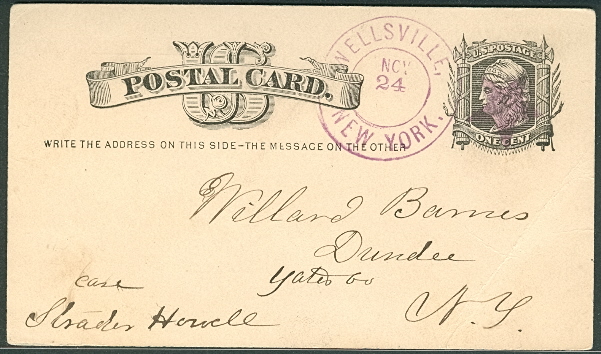 US
POSTAL CARD.
WELLSVILLE,
NOV
24
NEW YORK.
U.S. POSTAGE
ONE CENT
WRITE THE ADDRESS ON THIS SIDE-THE MESSAGE ON THE OTHER
Willard Barnes
Dundee
Yates Co
N.Y.
care
Strader Howell